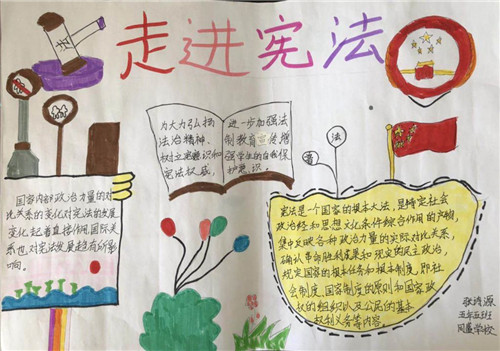 走进宪法
法
为大力弘扬
法治精神、
树立宪法意识和
宪法权威,
进一步加强法
制教育宣传增
强学生的自我保
护意识。
宪
法
国家内部政治力量的对
比关系的变化对宪法的发展
变化起着直接作用,国际关
系也对宪法发展趋有所影
响。
宪法是一个国家的根本大法,是特定社会
政治经和思想文化条件综合作用的产物,
集中反映各种政治力量的实际对比关系,
确认革命胜利成果和现实的民主政治,
规定国家的根本任务和根本制度,即社
会制度、国家制度的原则和国家政
权的组织以及公民的基本
权利义务等内容。
五年五班
凤凰学校